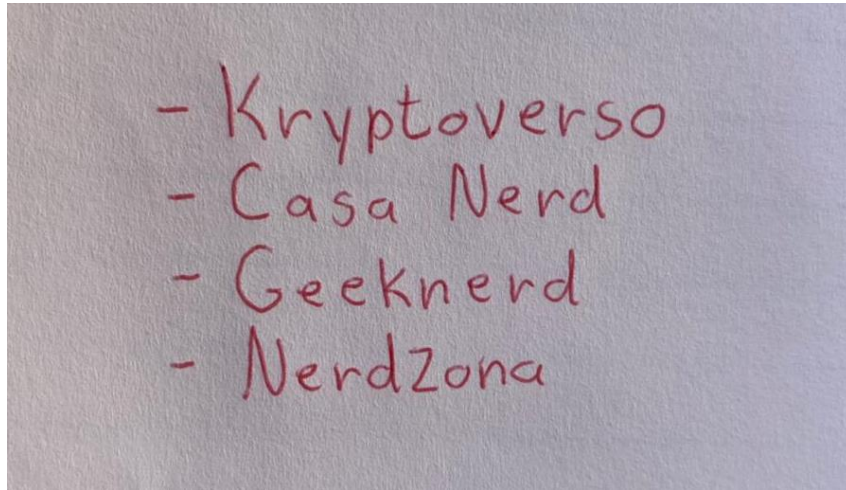 - Kryptoverso
- Casa Nerd
- Geeknerd
- NerdZona